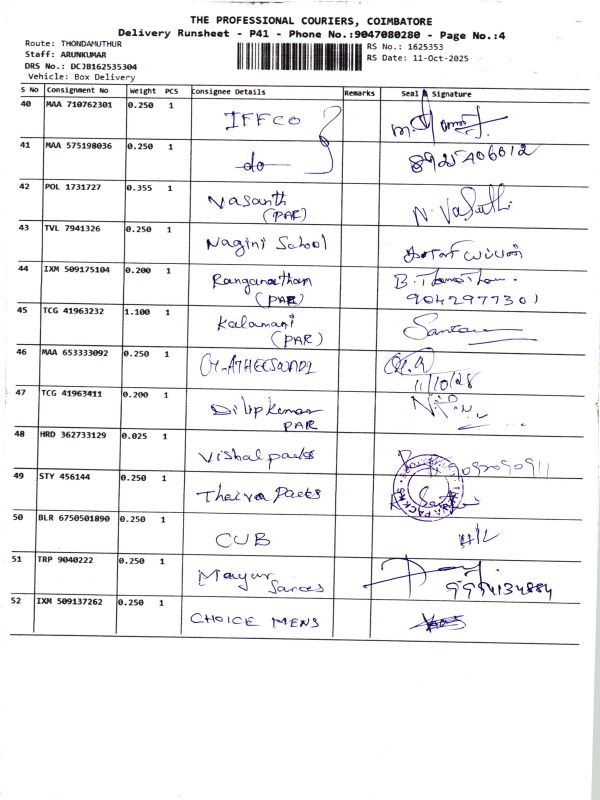 THE PROFESSIONAL COURIERS, COIMBATORE
Delivery Runsheet - P41 - Phone No.:9047080280 - Page No.:4
Route: THONDAMUTHUR
RS No.: 1625353
Staff: ARUNKUMAR
RS Date: 11-Oct-2025
DRS No.: DCJB162535304
Vehicle: Box Delivery
S No Consignment No Weight PCS Consignee Details Remarks Seal & Signature
40 MAA 710762301 0.250 1 IFFCO
41 MAA 575198036 0.250 1 -do- 8925406012
42 POL 1731727 0.355 1 Vasanth (PAR) N. Vasathi
43 TVL 7941326 0.250 1 Nagini School
44 IXM 509175104 0.200 1 Ranganathan (PAR) 9042977301
45 TCG 41963232 1.100 1 Kalamani (PAR)
46 MAA 653333092 0.250 1 11/10/25
47 TCG 41963411 0.200 1 Dilipkumar PAR
48 HRD 362733129 0.025 1 Vishal packs 9092090911
49 STY 456144 0.250 1 Packs
50 BLR 6750501890 0.250 1 CUB
51 TRP 9040222 0.250 1 Mayur Sarees 9994134884
52 IXM 509137262 0.250 1 CHOICE MENS